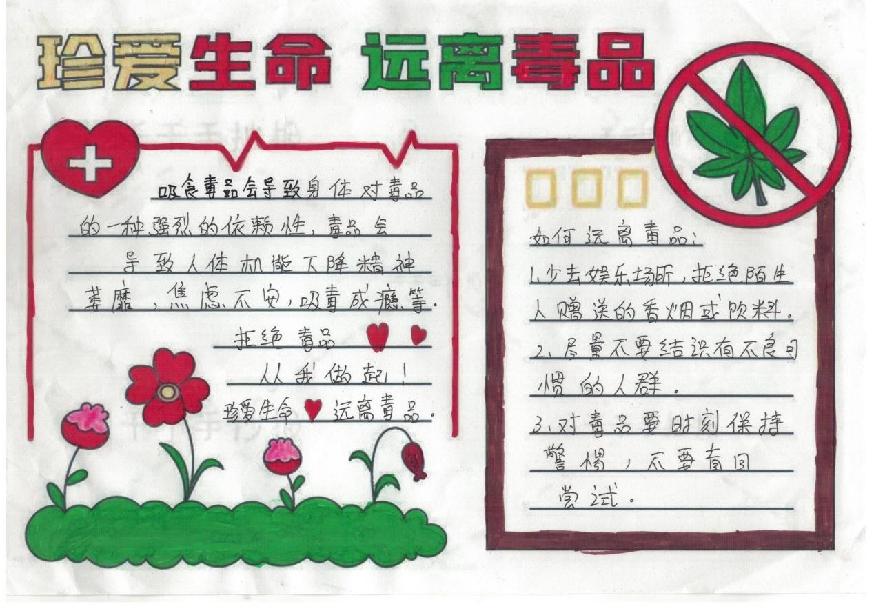 珍爱生命 远离毒品
吸食毒品会导致身体对毒品
的一种强烈的依赖性，毒品会
导致人体机能下降精神
萎靡，焦虑不安，吸毒成瘾等．
拒绝毒品
从我做起！
珍爱生命 远离毒品．
如何远离毒品：
1.少去娱乐场所，拒绝陌生
人赠送的香烟或饮料．
2、尽量不要结识有不良习
惯的人群．
3、对毒品要时刻保持
警惕，不要
尝试．